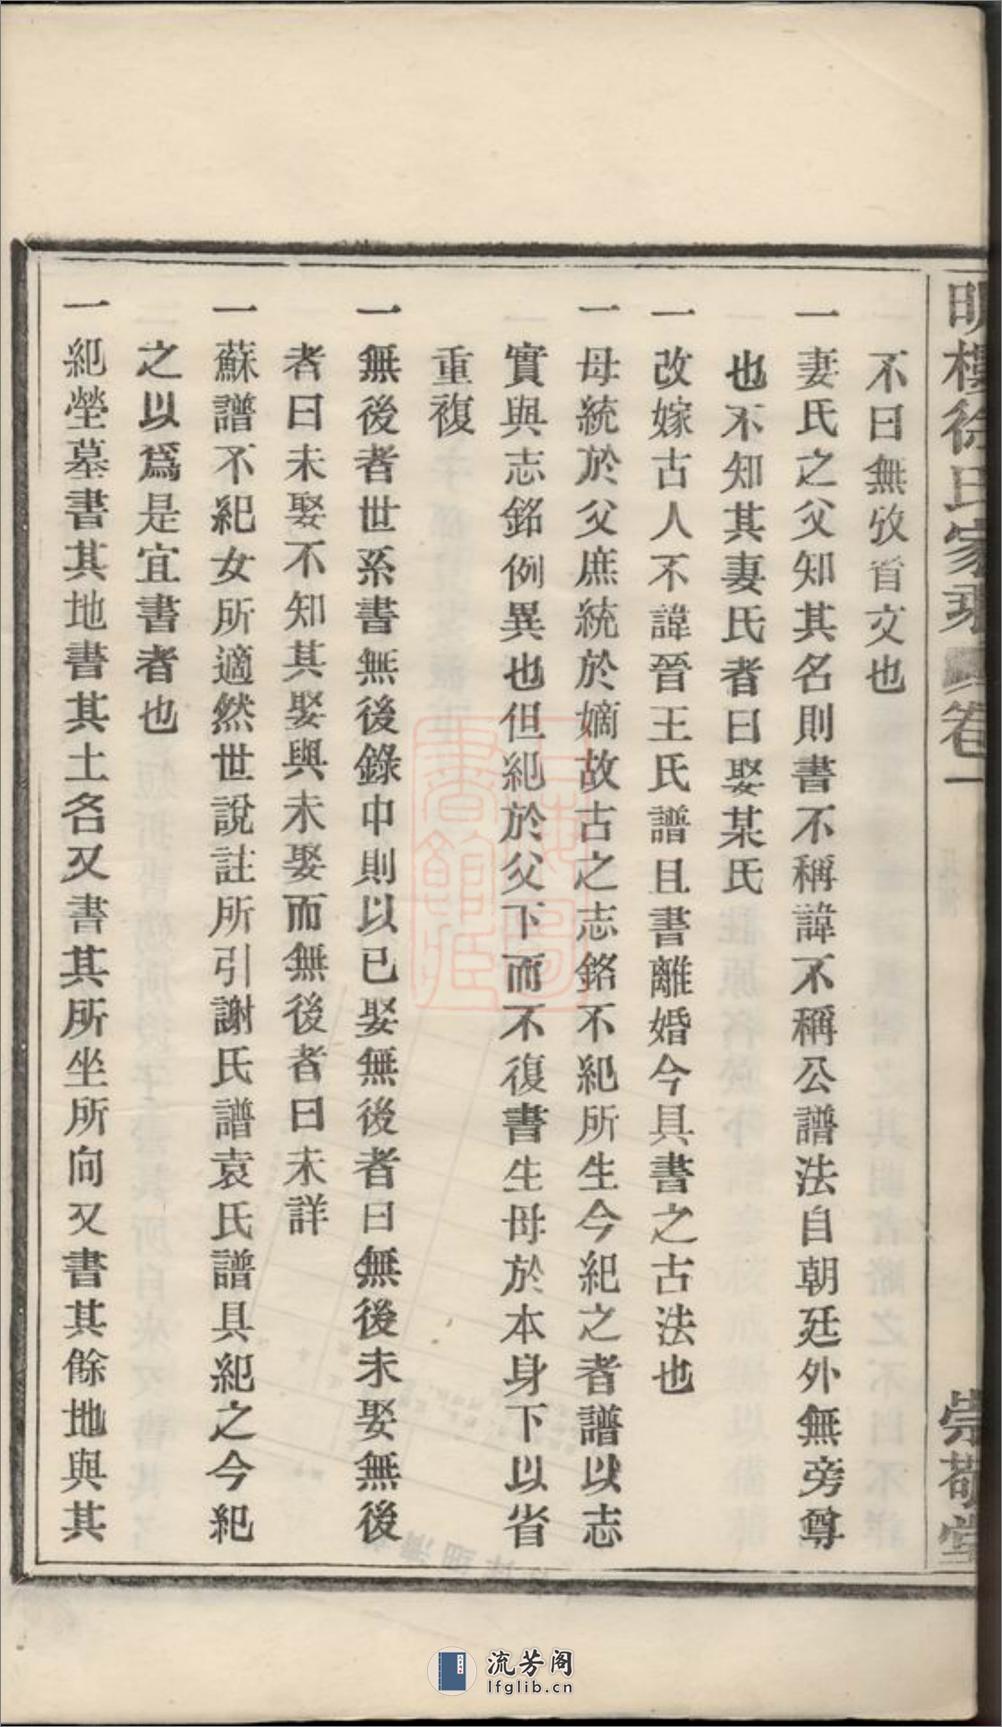 明樓徐氏家乘 卷一 崇敬堂
不曰無攷省文也
一妻氏之父知其名則書不稱諱不稱公譜法自朝廷外無旁尊
也不知其妻氏者曰娶某氏
一改嫁古人不諱晉王氏譜且書離婚今具書之古法也
一母統於父庶統於嫡故古之志銘不紀所生今紀之者譜以志
實與志銘例異也但紀於父下而不復書生母於本身下以省
重複
一無後者世系書無後錄中則以已娶無後者曰無後未娶無後
者曰未娶不知其娶與未娶而無後者曰未詳
一蘇譜不紀女所適然世說註所引謝氏譜袁氏譜具紀之今紀
之以爲是宜書者也
一紀塋墓書其地書其土名又書其所坐所向又書其餘地與其
流芳阁
lfglib.cn